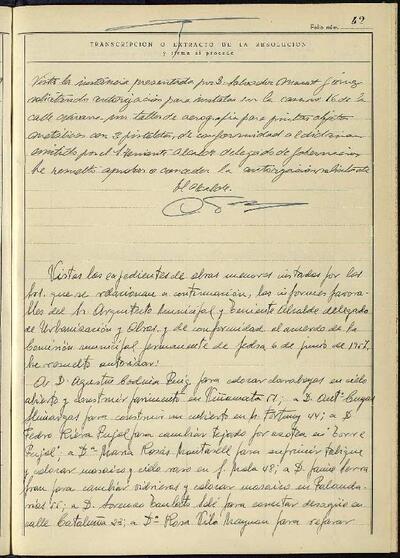 Folio núm. 49
TRANSCRIPCION O EXTRACTO DE LA RESOLUCION
y firma si procede
Vista la instancia presentada por D. Salvador Gómez
solicitando autorización para instalar en la 16 de la
calle un taller de aerografía para pintar objetos
metálicos con 3 pistoletes, de conformidad al dictamen
emitido por el Teniente Alcalde delegado de Gobernación
he resuelto aprobar o conceder la autorización solicitada
El Alcalde.
Vistos los expedientes de obras menores instados por los
Srs. que se relacionan a continuación, los informes favora-
bles del Sr. Arquitecto Municipal y Teniente Alcalde delegado
de Urbanización y Obras, y de conformidad al acuerdo de la
Comisión municipal permanente de fecha 6 de junio de 1967,
he resuelto autorizar:
A D. Agustín Codina Puig para colocar en cielo
abierto y construir pavimento en Viñamata 51; a D. Antº
para construir un cubierto en Fortuny 44; a D.
Pedro Riera Pujol para cambiar tejado por azotea en Torre
Pujol; a Dª Maria Rosás para suprimir tabique
y colocar mosaico y cielo raso en 48; a D. Jaime Serra
para cambiar vidrieras y colocar mosaico en
a D. Lorenzo para conectar desagüe en
calle Cataluña 23; a Dª Rosa Vilá para reparar